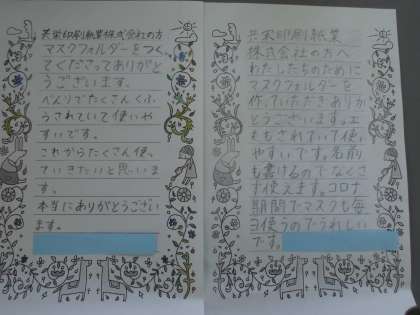 共栄印刷紙業株式会社の方
マスクフォルダーをつくっ
てくださってありがと
うございます。
べんりでたくさんくふ
うされていて使いや
すいです。
これからたくさん使っ
ていきたいと思いま
す。
本当にありがとうござい
ます。
共栄印刷紙業
株式会社の方へ
わたしたちのために
マスクフォルダーを
作っていただきありが
とうございます。
もされていて使い
やすいです。名前
も書けるのでなくさ
ず使えます。コロナ
期間でマスクも毎
日使うのでうれしい
です。